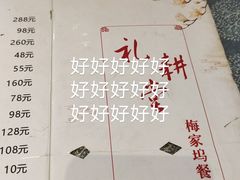 288元
98元
260元
48元
55元
160元
78元
98元
128元
108元
10元
好好好好好
好好好好好
好好好好好
礼耕堂
梅家坞餐